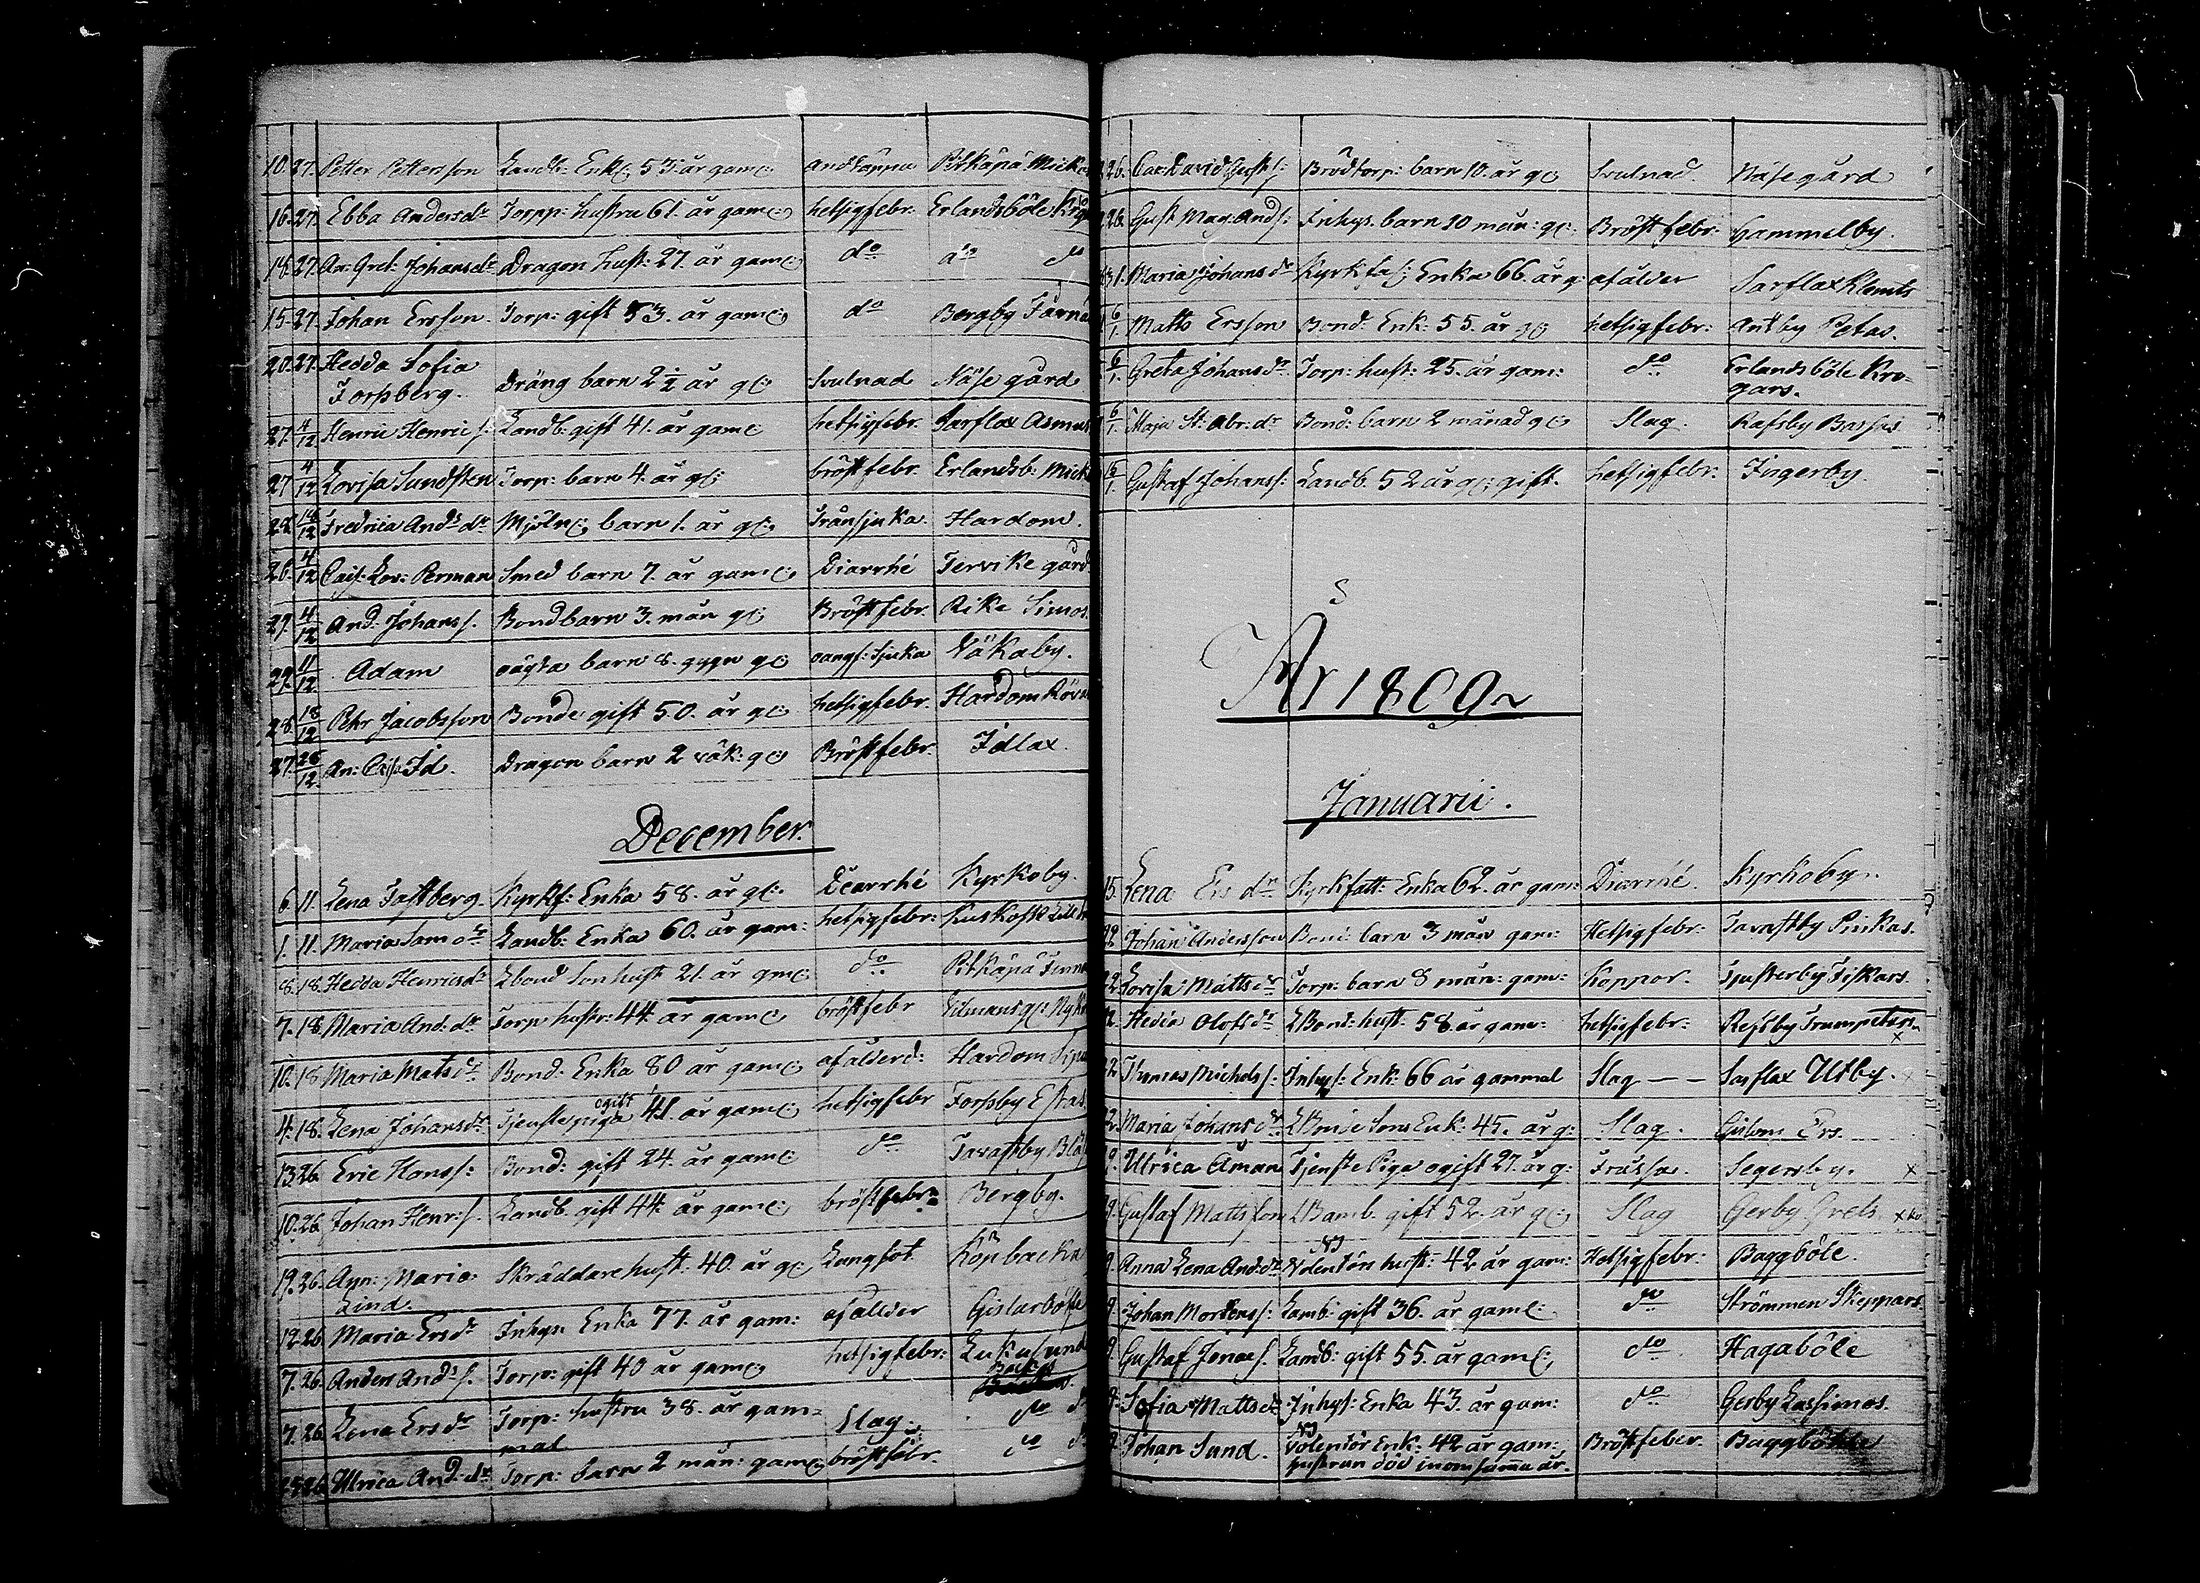 10. 27. Petter Pettersson Landb: Enkl: 53. år gam: andtäppa Pitkäpä Mick
16. 27. Ebba Andersdr Torpp: hustru 61. år gam: hetsigfebr. Erlandsböle
14. 27. An: Gret: Johansdr Dragon hust: 27. år gam: do do do
15. 27. Johan Ersson Torp: gift 53. år gam: do Bergby
20. 27. Hedda Sofia
Forssberg. Dräng barn 2½ år gl: Svulnad Näse gård
27. 4/12 Henric Henrics: Landb: gift 41. år gam: hetsigfebr. Sarflax Asmus
27 4/12 Lovisa Sundsten Torp: barn 4. år gl: bröstfebr. Erlandsb: Mick
22 18/12 Fredrica And:dr Mjöln: barn 1. år gl: Trånsjuka. Hardom.
26. 4/12 Cajs: Lov: Perman Smed barn 7. år gam: Diarrhé Tervike gård
29. 4/12 And. Johans s. Bondbarn 3. mån gl: Bröstfebr. Rike Simos.
29. 11/12 Adam oägta barn 8. dygn gl: oangf: Sjuka Näkaby.
28. 18/12 Petr Jacobsson Bonde gift 50. år gl: hetsigfebr. Hardom
27. 26/12 An: Cajs: Id. Dragon barn 2 vek: gl: Bröstfebr. Idlax.
December.
6. 11. Lena Fastberg. Kyrkf: Enka 58. år gl: Diarrhé Kyrkoby.
1. 11. Maria Sam dr Landb: Enka 60. år gam: hetsigfebr: Kuskosk Lill
8. 18. Hedda Henricsdr Lbond Son hust 21. år gam: do Pitkäpä Finne
7. 18. Maria And: dr Torp hustr: 44. år gam: bröstfebr Tilmansg: Nyk
10. 18. Maria Matsdr Bond: Enka 80 år gam: afålderd: Hardom
4. 18. Lena Johansdr Tjenstepiga ogift 41. år gam: hetsigfebr Forssby Estas
13. 26. Eric Hanss: Bond: gift 24. år gam: do Tavastby Blå
10. 26. Johan Henr: s. Landb. gift 44. år gam: bröstfebr: Bergby.
19. 26. Ann: Maria: Skräddare hust: 40. år gl: Lungsot Könbacka
Lind.
12. 26. Maria Ersdr Inhys Enka 77. år gam: afållder Gislarböle
7. 26. Anders And: s. Torp: gift 40 år gam: hetsigfebr: Lukusunds
Backas
7. 26. Lena Ersdr Torp: hustru 38. år gam- Slag. do
mal
25. 26. Ulrica And. dr Torp: barn 2 mån: gam: bröstfebr. do
26. Carl David Gust s: Brödtorp: barn 10. år gl: Svulnad. Näsegård
26. Gust Mag: And s: Inhys. barn 10 mån: gl: Bröstfebr: Gammelby.
31. Maria Johansdr Kyrkfa: Enka 66. år g: afålder Sarflax Klemets
6/1. Matts Ersson Bond: Enk: 55. år gl: hetsigfebr: Antby Petas.
6/1. Greta Johansdr Torp: hust: 25. år gam: do Erlandsböle Kro-
gars.
6/1. Maja St: Abr: dr Bond: barn 2 månad gl: Slag. Rafsby Basses
16/1. Gustaf Johans s: Landb. 52 år gl: gift. hetsigfebr: Ingerby.
År 1809
Januarii.
15. Lena Ers dr Kyrkfatt: Enka 62. år gam: Diarrhé. Kyrkoby.
22 Johan Andersson Bond: barn 3 mån gam: Hetsigfebr: Tavastby Pinkas.
22. Lovisa Matts dr Torp: barn 8 mån: gam: Koppor. Tjusterby Fiskars.
22. Hedda Olofsdr L Bond: hust: 58 år gam: hetsigfebr: Refsby Trumpeters x
22 Thomas Michels s: Inhys: Enk: 66 år gammal Slag — — Sarflax Utby. x
22. Maria Johans dr L Bonde Sons Enk: 45. år g: Slag. Gislom Ers.
9. Ulrica Åman Tjenste Piga ogift 27. år g: Frossa. Segersby. x
9. Gustaf Mattsson L Bamb. gift 52. år gl: Slag Gerby Grels x
9. Anna Lena And: dr Volentör hust: 42 år gam: Hetsigfebr: Baggböle.
9. Johan Mortens s: Lamb: gift 36. år gam: do Strömmen Skeppars.
9. Gustaf Jonaes. Lamb: gift 55. år gam: do Hagaböle
9. Sofia Matts dr Inhys: Enka 43. år gam: do Gerby Lassimos.
9. Johan Sund. Volentör Enk: 42 år gam: Bröstfeber. Baggböhle
hustrun död inom samma år.